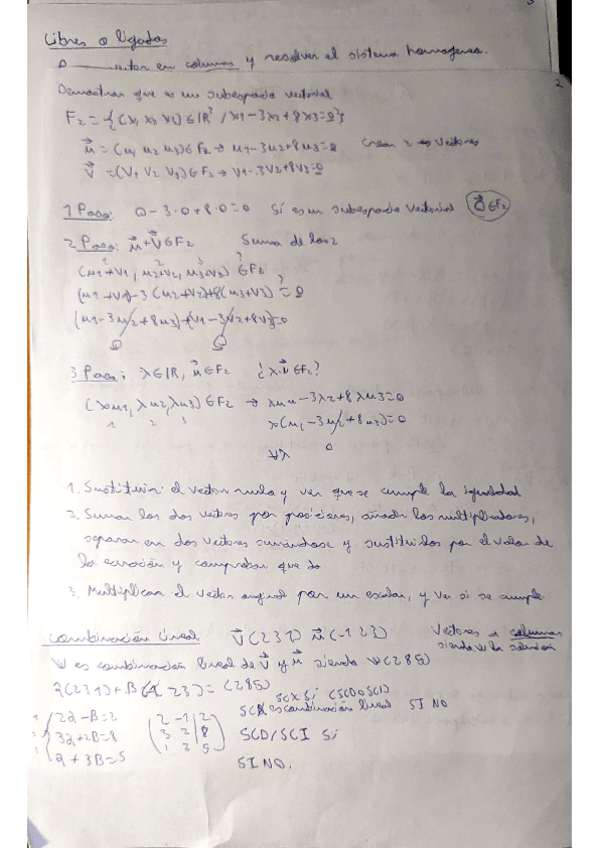 Libres o ligados
vector en columnas y resolver el sistema homogeneo.
2
Demostrar que es un subespacio vectorial
F2 = {(x1 x2 x3) ∈ IR³ / x1-3x2+8x3=0}
u⃗ = (u1 u2 u3) ∈ F2 → u1-3u2+8u3=0 Crear 2 vectores
v⃗ = (v1 v2 v3) ∈ F2 → v1-3v2+8v3=0
1 Paso: 0-3·0+8·0=0 Sí es un subespacio vectorial 0⃗ ∈ F2
2 Paso: u⃗+v⃗ ∈ F2 Suma de los 2
(u1+v1, u2+v2, u3+v3) ∈ F2 ?
(u1+v1)-3(u2+v2)+8(u3+v3) = 0 ?
(u1-3u2+8u3)+(v1-3v2+8v3)=0
0 0
3 Paso: λ ∈ IR, u⃗ ∈ F2 ¿λ·u⃗ ∈ F2?
(λu1, λu2, λu3) ∈ F2 → λu1-3λ2+8λu3=0
1 2 3 λ(u1-3u2+8u3)=0
∀λ 0
1. Sustituir el vector nulo y ver que se cumple la igualdad
2. Sumar los dos vectores por posiciones, añadir los multiplicadores,
separar en dos vectores sumándose y sustituirlos por el valor de
la ecuación y comprobar que da
3. Multiplicar el vector original por un escalar, y ver si se cumple
Combinación lineal v⃗(231) u⃗(-123) Vectores en columnas
siendo la solución
w es combinación lineal de v⃗ y u⃗ siendo w(285)
2(231)+B(-1 23)=(285)
Si (SCD o SCI)
es combinación lineal SI NO
2a-B=2
3a+2B=8
a+3B=5
2 -1 | 2
3 2 | 8
1 3 5
SCD/SCI Si
SI NO.